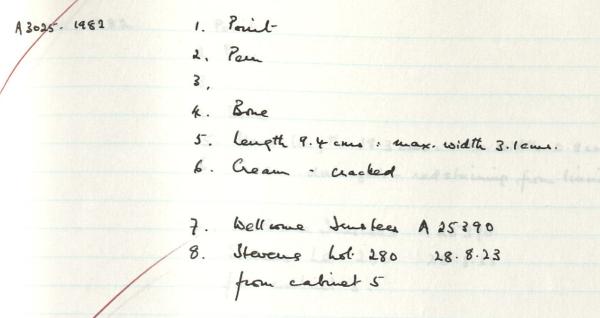 A3025.1982
1. Point
2. Peru
3.
4. Bone
5. Length 9.4 cms : max. width 3.1 cms.
6. Cream - cracked
7. Wellcome Trustees A 25390
8. Stevens Lot 280 28.8.23
from cabinet 5